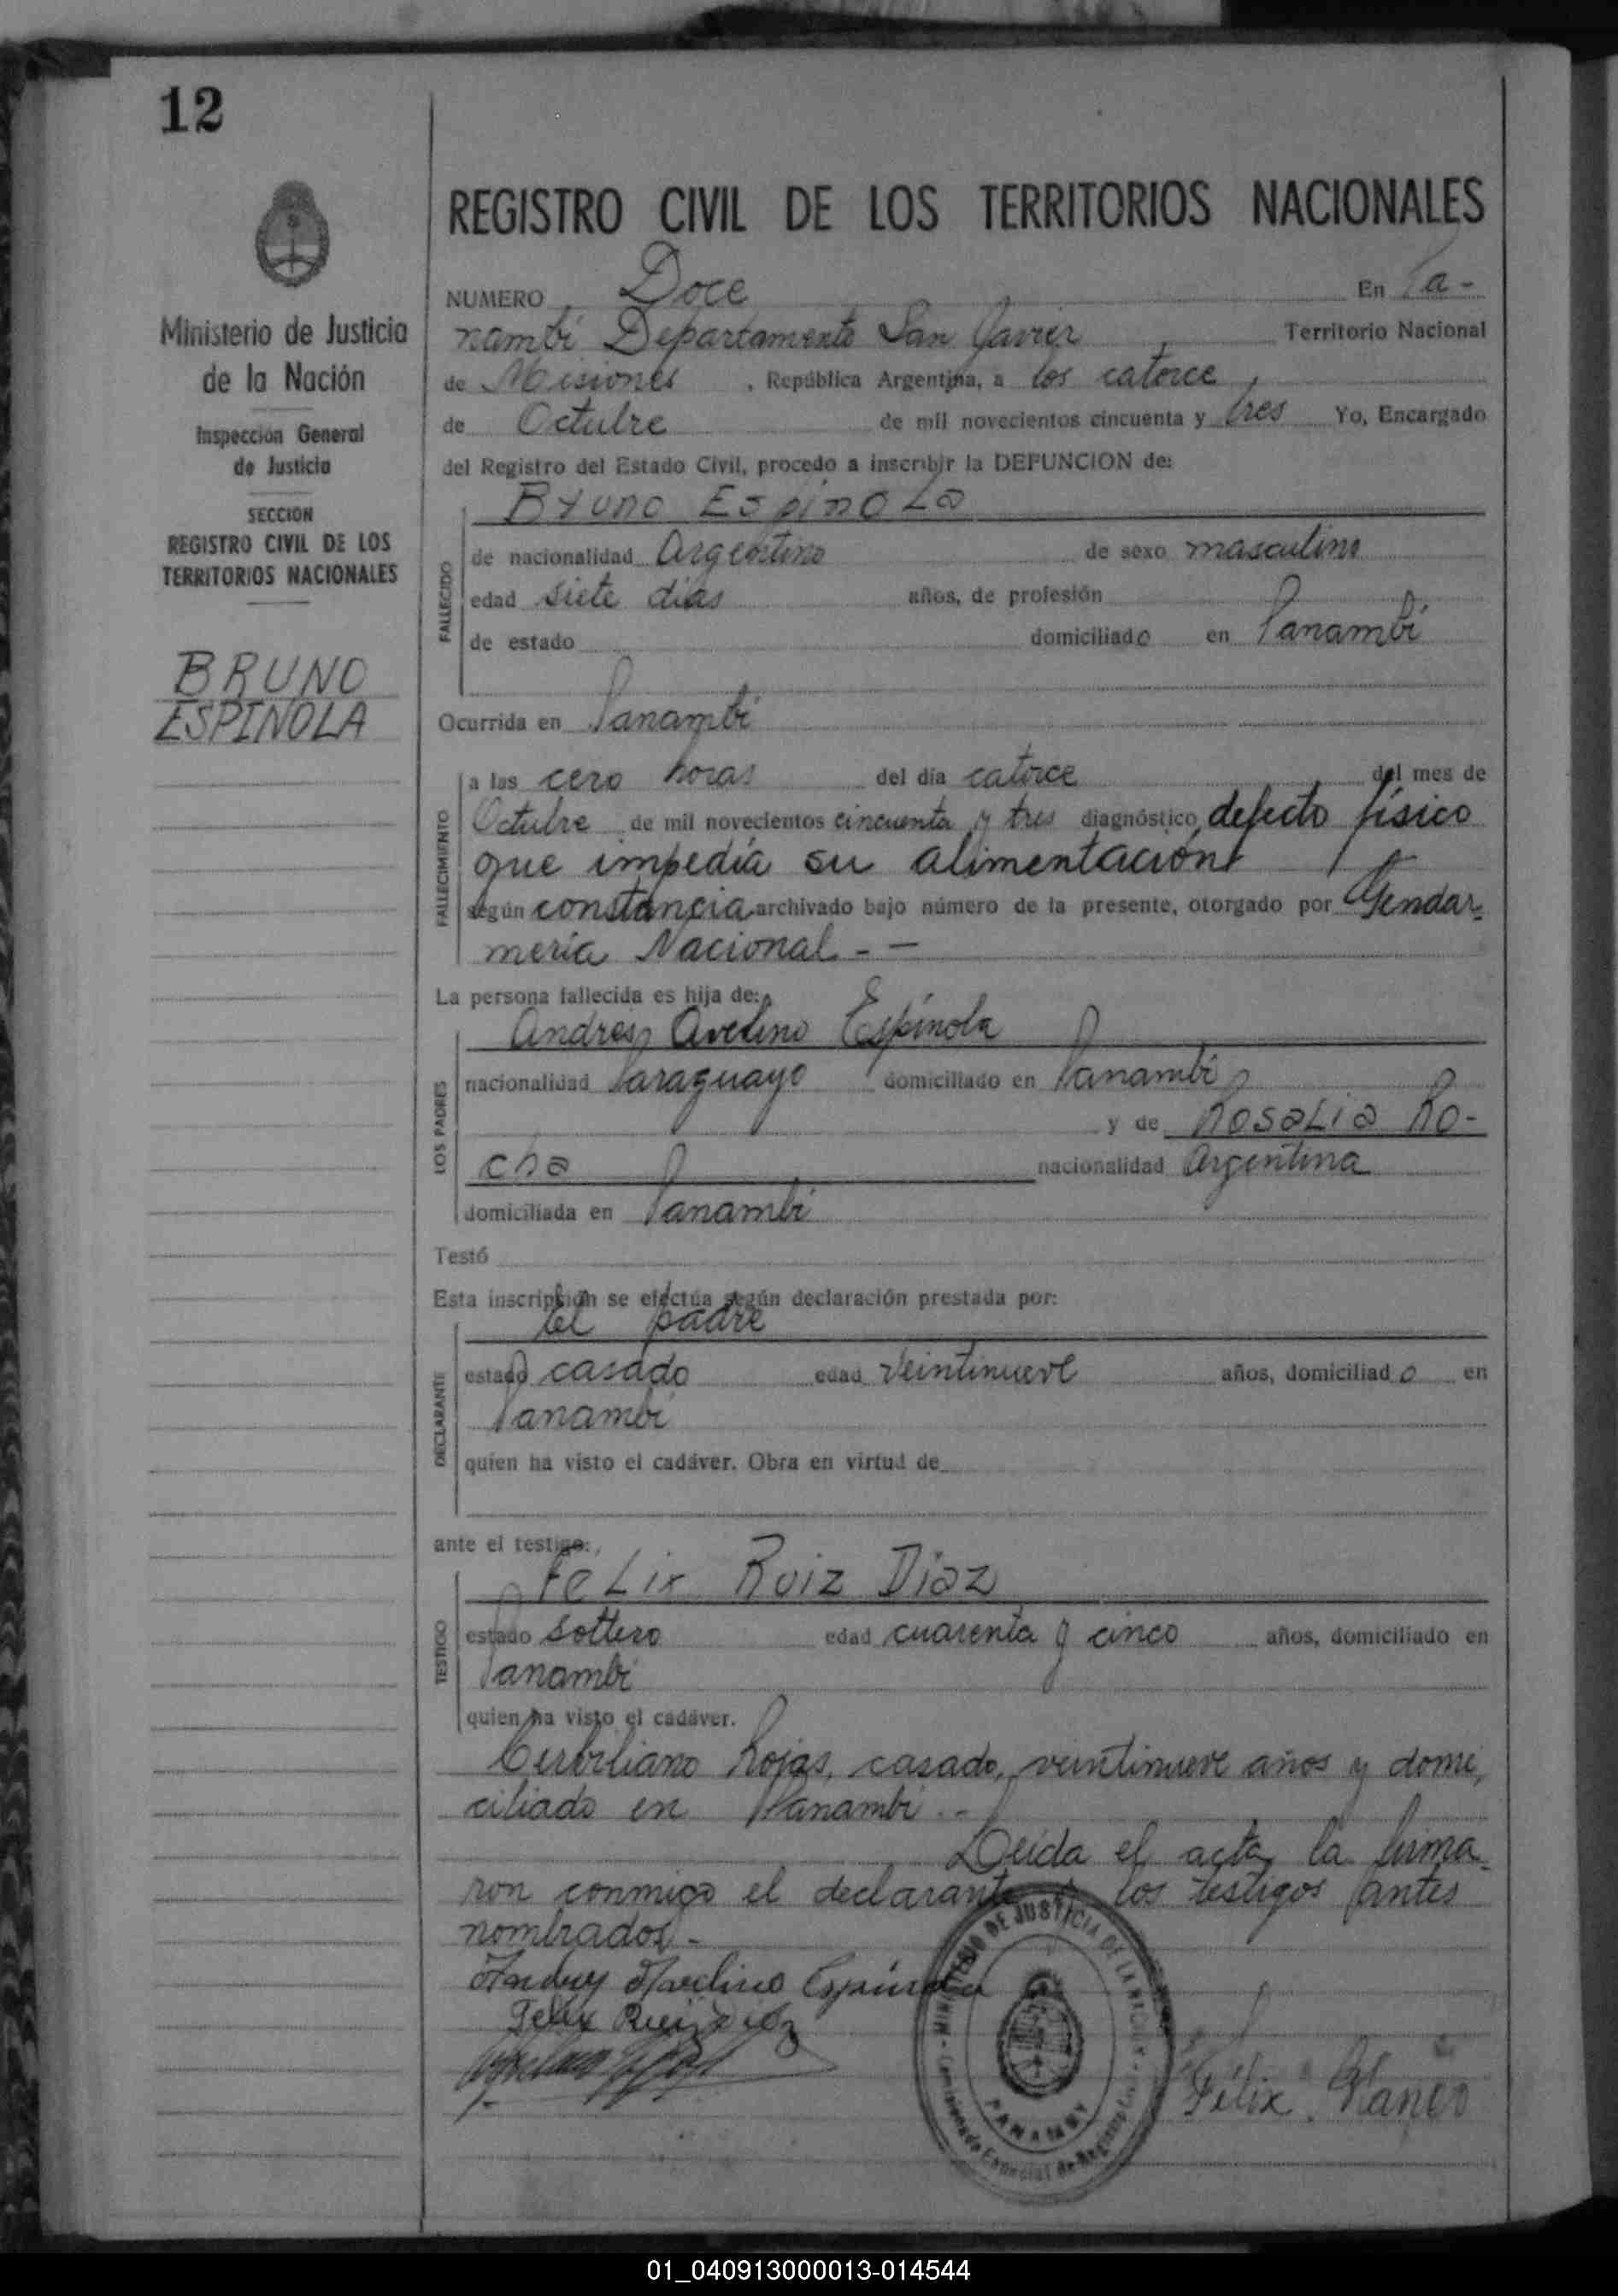 12
Ministerio de Justicia
de la Nación
Inspección General
de Justicia
SECCION
REGISTRO CIVIL DE LOS
TERRITORIOS NACIONALES
BRUNO
ESPINOLA
REGISTRO CIVIL DE LOS TERRITORIOS NACIONALES
NUMERO Doce En Pa-
nambí Departamento San Javier Territorio Nacional
de Misiones, República Argentina, a los catorce
de Octubre de mil novecientos cincuenta y tres Yo, Encargado
del Registro del Estado Civil, procedo a inscribir la DEFUNCION de:
Bruno Espinola
FALLECIDO
de nacionalidad Argentino de sexo masculino
edad siete días años, de profesión
de estado domiciliado en Panambí
Ocurrida en Panambí
FALLECIMIENTO
a las cero horas del día catorce del mes de
Octubre de mil novecientos cincuenta y tres diagnóstico, defecto físico
que impedía su alimentación
según constancia archivado bajo número de la presente, otorgado por Gendar-
mería Nacional - -
La persona fallecida es hija de:
Andres Avelino Espínola
LOS PADRES
nacionalidad Paraguayo domiciliado en Panambí
y de Rosalia Ro-
cha nacionalidad Argentina
domiciliada en Panambí
Testó
Esta inscripción se efectúa según declaración prestada por:
el padre
DECLARANTE
estado casado edad veintinueve años, domiciliado en
Panambí
quien ha visto el cadáver. Obra en virtud de
ante el testigo:
Felix Ruiz Diaz
TESTIGO
estado soltero edad cuarenta y cinco años, domiciliado en
Panambí
quien ha visto el cadáver.
Rojas, casado, veintinueve años y domi-
ciliado en Panambí.-
Leída el acta, la firma-
ron conmigo el declarante y los testigos antes
nombrados.-
Avelino Espínola
Felix Ruiz Diaz
MINISTERIO DE JUSTICIA DE LA NACION
PANAMBY
Félix
01_040913000013-014544